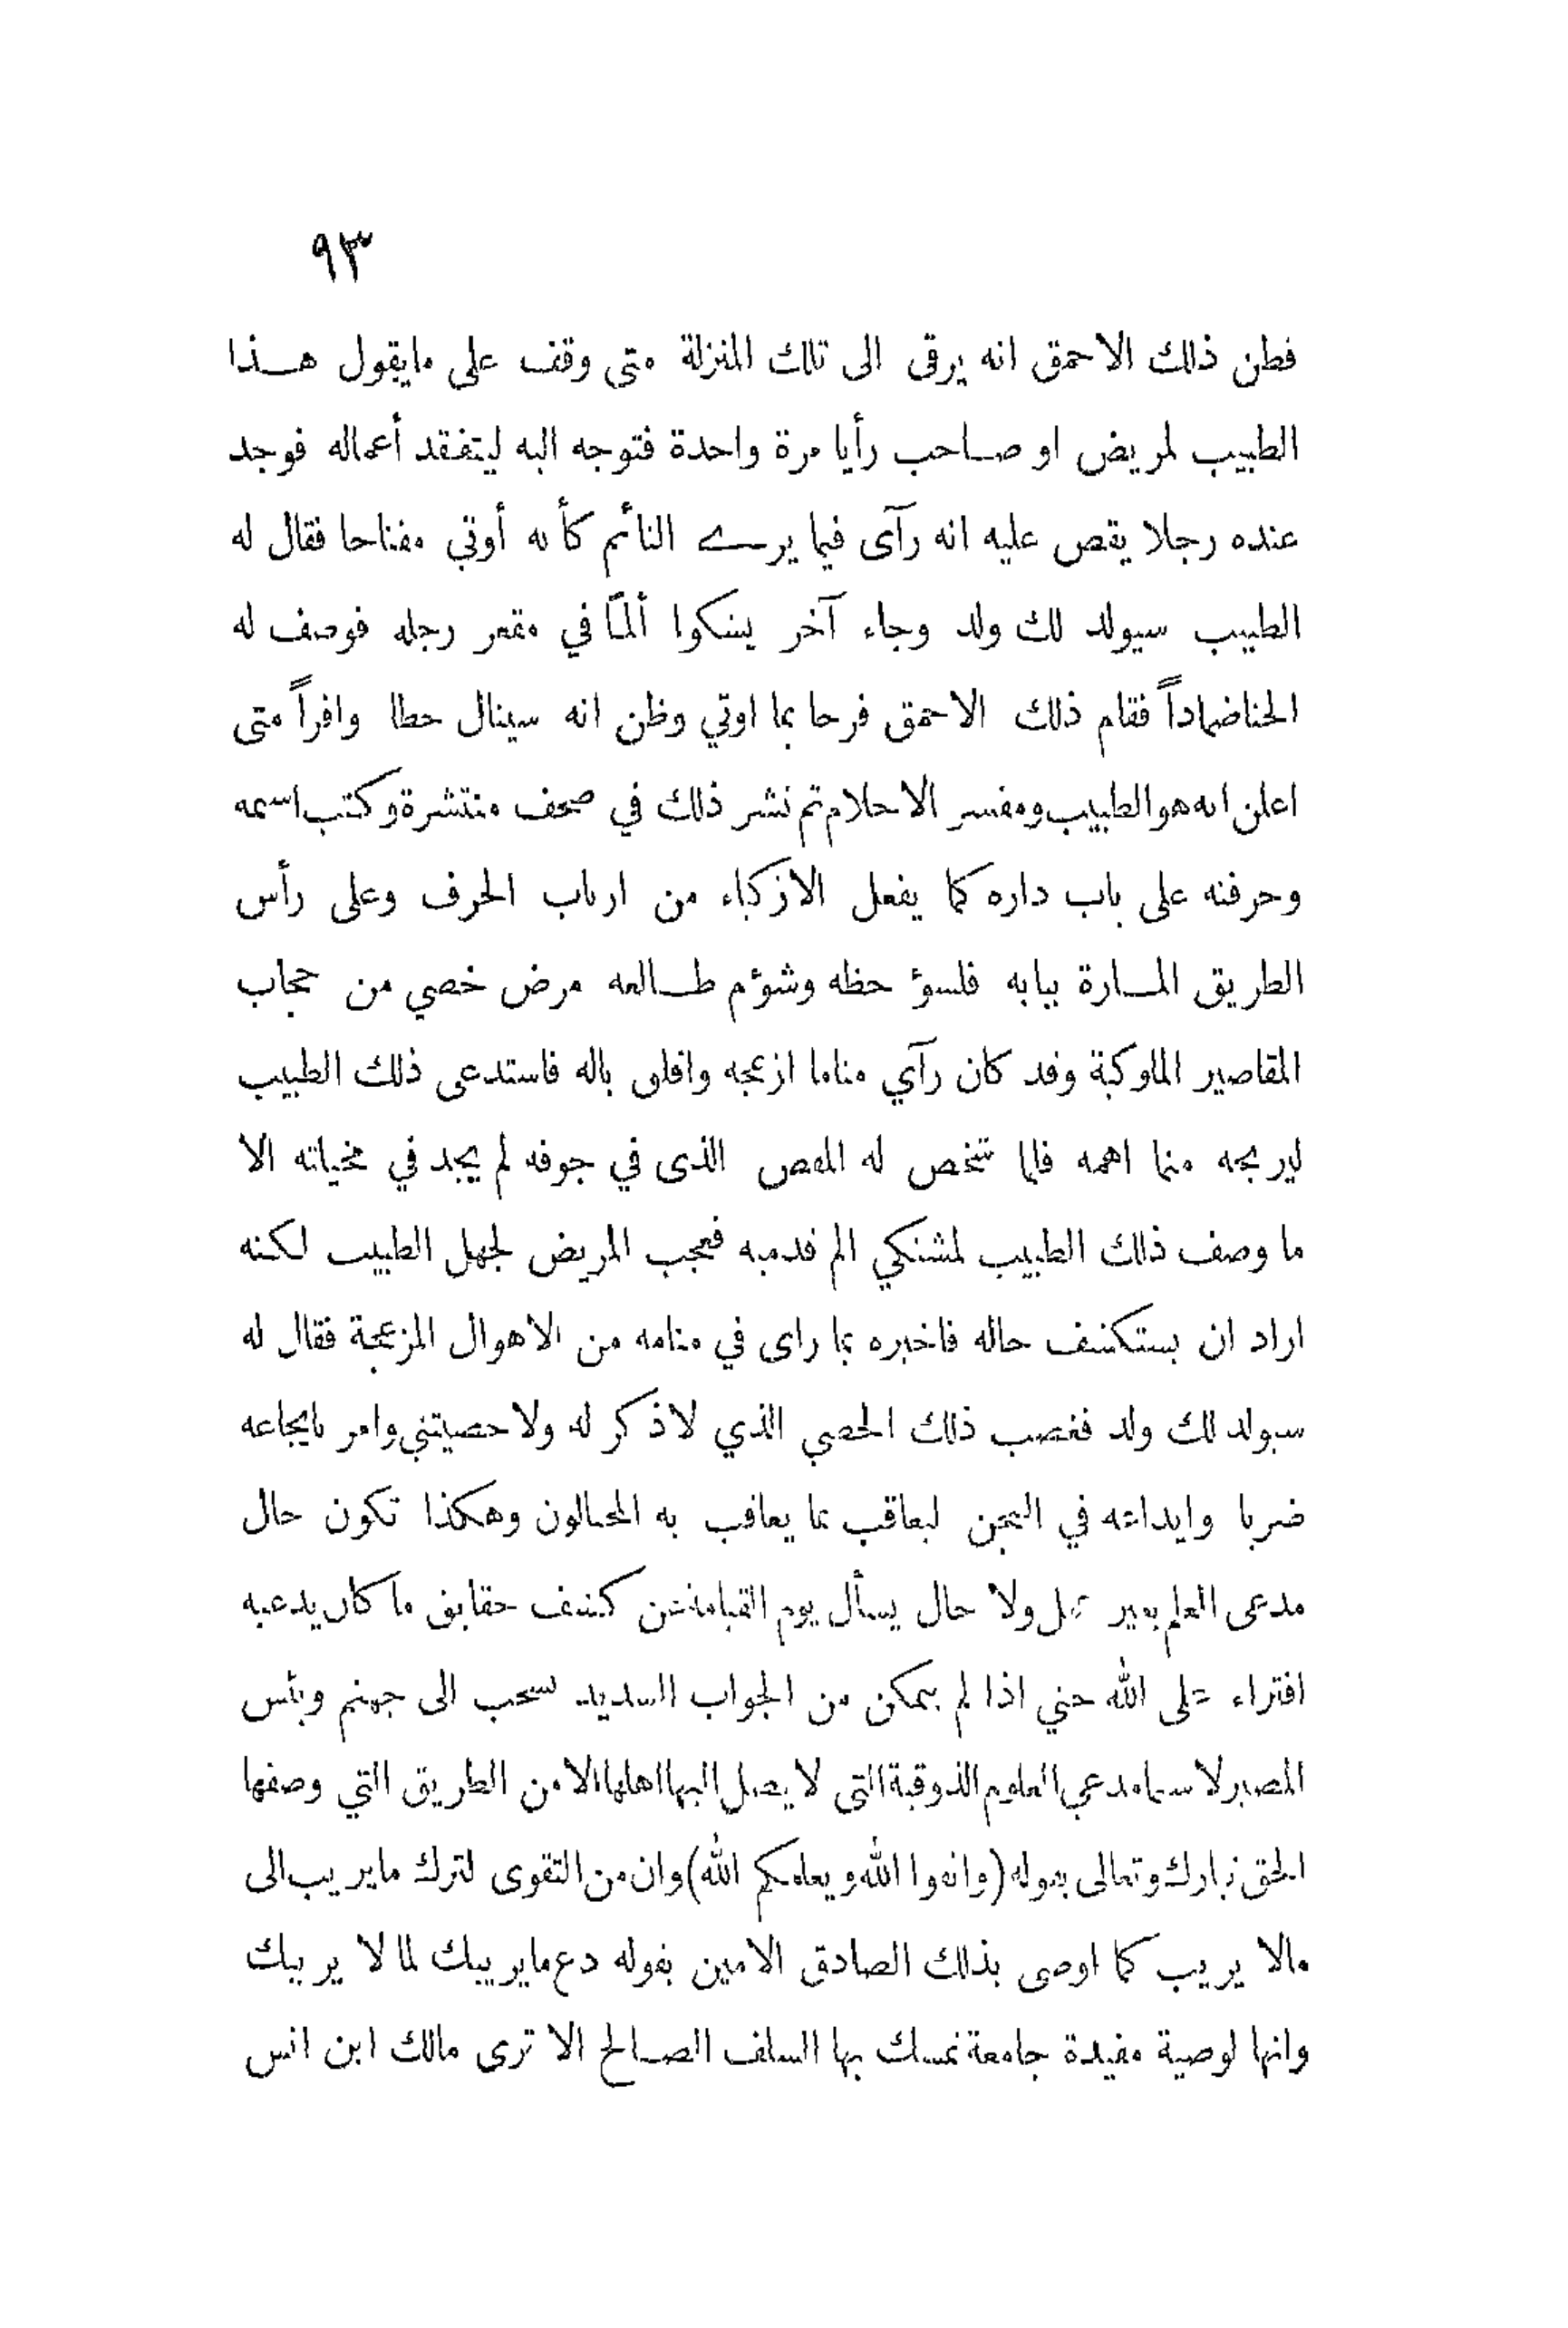 ٩٣
فظن ذلك الاحمق انه يرقى الى تلك المنزلة متى وقف على مايقول هـذا
الطبيب لمريض او صـاحب رأيا مرة واحدة فتوجه اليه ليتفقد أعماله فوجد
عنده رجلا يقص عليه انه رآى فيما يرـے النائم كأنه أوتي مفتاحا فقال له
الطبيب سيولد لك ولد وجاء آخر يشكوا ألمًا في مقعر رجله فوصف له
الحناضماداً فقام ذلك الاحمق فرحا بما اوتي وظن انه سينال حظا وافراً متى
اعلن انه هو الطبيب ومفسر الاحلام ثم نشر ذلك في صحف منتشرة وكتب اسمه
وحرفته على باب داره كما يفعل الازكياء من ارباب الحرف وعلى رأس
الطريق المـارة ببابه فلسؤ حظه وشؤم طـالعه مرض خصي من حجاب
المقاصير الملوكية وقد كان رآي مناما ازعجه واقلق باله فاستدعى ذلك الطبيب
ليريحه مما اهمه فلما تشخص له المغص الذى في جوفه لم يجد في مخيلته الا
ما وصف ذلك الطبيب لمشتكي الم قدميه فعجب المريض لجهل الطبيب لكنه
اراد ان يستكشف حاله فاخبره بما راى في منامه من الاهوال المزعجة فقال له
سيولد لك ولد فغضب ذلك الخصي الذي لا ذكر له ولا خصيتني وامر بايجاعه
ضربا وايداعه في السجن ليعاقب بما يعاقب به المحتالون وهكذا تكون حال
مدعى العلم بغير عمل ولا حال يسأل يوم القيامة عن كشف حقايق ما كان يدعيه
افتراء على الله حتي اذا لم يتمكن من الجواب السديد سحب الى جهنم وبئس
المصير لا سيما مدعي العلوم الذوقية التى لا يصل اليها اهلها الا من الطريق التي وصفها
الحق تبارك وتعالى بقوله (واتقوا الله ويعلمكم الله) وان من التقوى لترك ما يريب الى
مالا يريب كما اوصى بذلك الصادق الامين بقوله دع ما يريبك لما لا يريبك
وانها لوصية مفيدة جامعة تمسك بها السلف الصـالح الا ترى مالك ابن انس